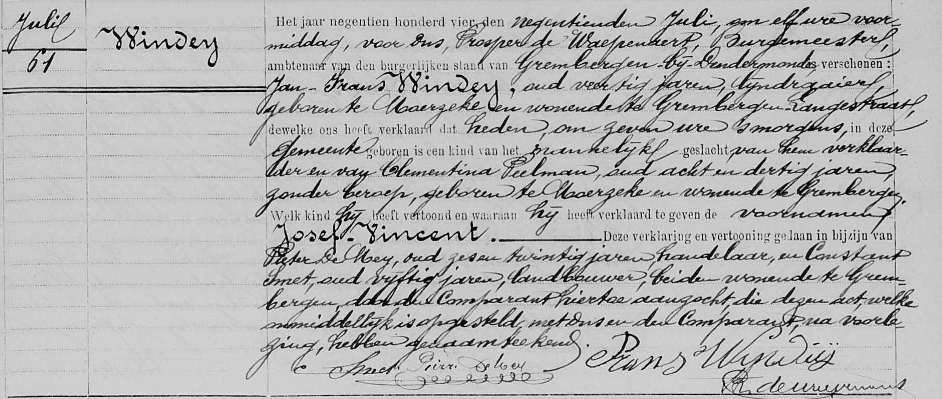 Julij
61
Windey
Het jaar negentien honderd vier, den negentienden Juli, om elf ure voor-
middag, voor Ons, Prosper de Waepenaert, Burgemeester,
ambtenaar van den burgerlijken stand van Grembergen-bij-Dendermonde, is verschenen :
Jan-Frans Windey, oud veertig jaren,
geboren te Moerzeke en wonende te Grembergen Langestraat,
dewelke ons heeft verklaard dat heden, om zeven ure 's morgens, in deze
Gemeente geboren is een kind van het mannelijk geslacht, van hem verklaar-
der en van Clementina Peelman, oud acht en dertig jaren,
zonder beroep, geboren te Moerzeke en wonende te Grembergen,
Welk kind hij heeft vertoond en waaraan hij heeft verklaard te geven de voornamen
Josef-Vincent. Deze verklaring en vertooning gedaan in bijzijn van
Pieter De Mey, oud zes en twintig jaren handelaar, en Constant
Smet, oud vijftig jaren, landbouwer, beiden wonende te Grem-
bergen, door den Comparant hiertoe aangezocht, die dezen act, welke
onmiddellijk is opgesteld, met Ons en den Comparant, na voorle-
zing, hebben genaamteekend.
C Smet Pierre De Mey Frans Windeij